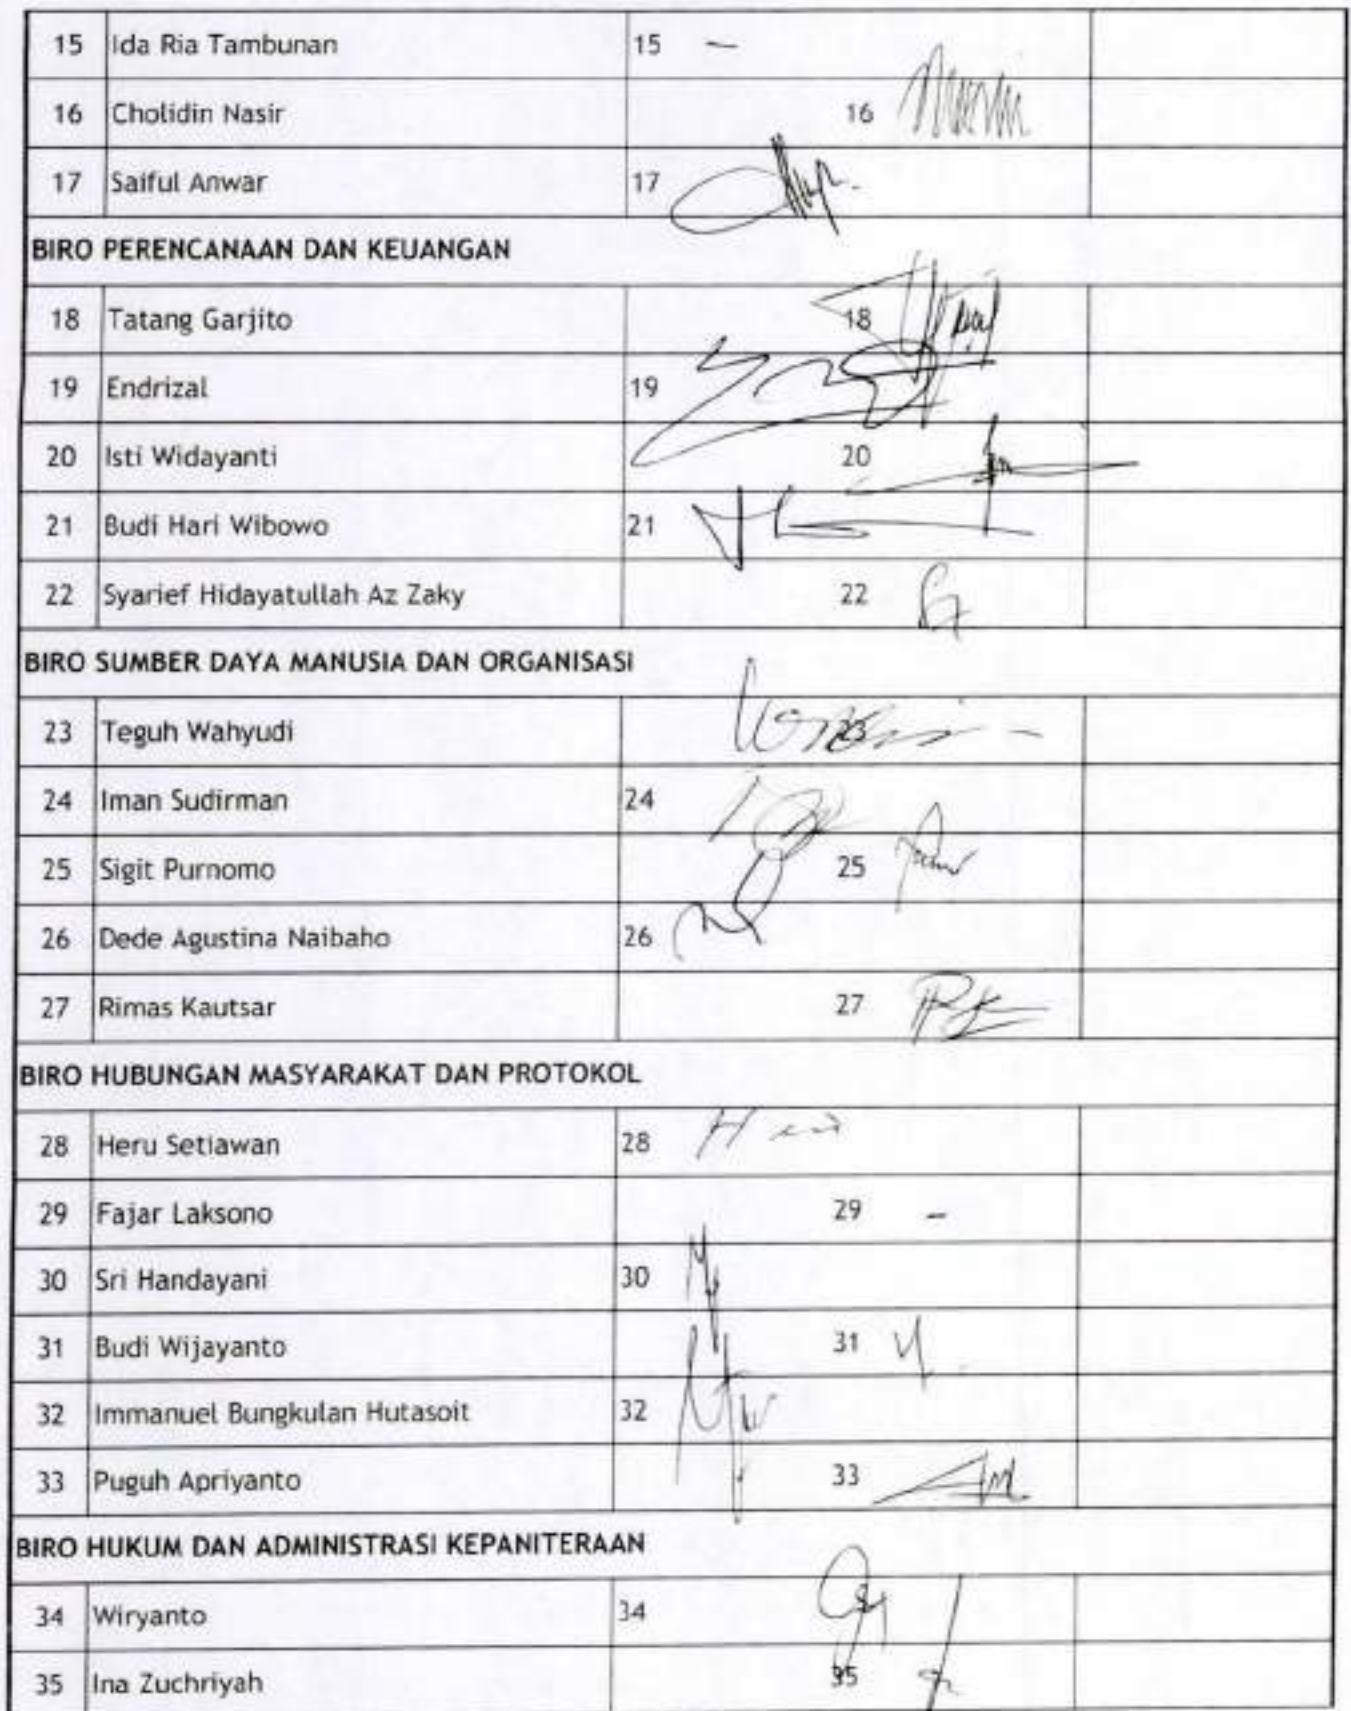 15 Ida Ria Tambunan 15 -
16 Cholidin Nasir 16
17 Saiful Anwar 17
BIRO PERENCANAAN DAN KEUANGAN
18 Tatang Garjito 18
19 Endrizal 19
20 Isti Widayanti 20
21 Budi Hari Wibowo 21
22 Syarief Hidayatullah Az Zaky 22
BIRO SUMBER DAYA MANUSIA DAN ORGANISASI
23 Teguh Wahyudi 23
24 Iman Sudirman 24
25 Sigit Purnomo 25
26 Dede Agustina Naibaho 26
27 Rimas Kautsar 27
BIRO HUBUNGAN MASYARAKAT DAN PROTOKOL
28 Heru Setiawan 28
29 Fajar Laksono 29 -
30 Sri Handayani 30
31 Budi Wijayanto 31
32 Immanuel Bungkulan Hutasoit 32
33 Puguh Apriyanto 33
BIRO HUKUM DAN ADMINISTRASI KEPANITERAAN
34 Wiryanto 34
35 Ina Zuchriyah 35